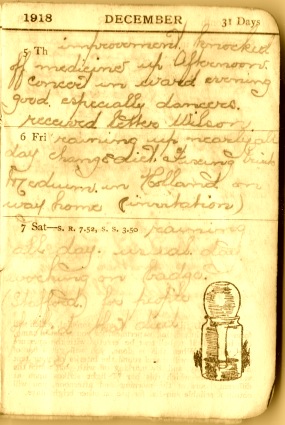 1918 DECEMBER 31 Days
5 Th improvement knocked
off medicine up Afternoon.
concert in ward evening
good especially dancers.
received letter Wilson
6 Fri raining up nearly all
day change diet.
medium in Holland on
way home (invitation)
7 Sat—S. R. 7.52, S. S. 3.50 raining
all day. usual diet
working on badge.
diet